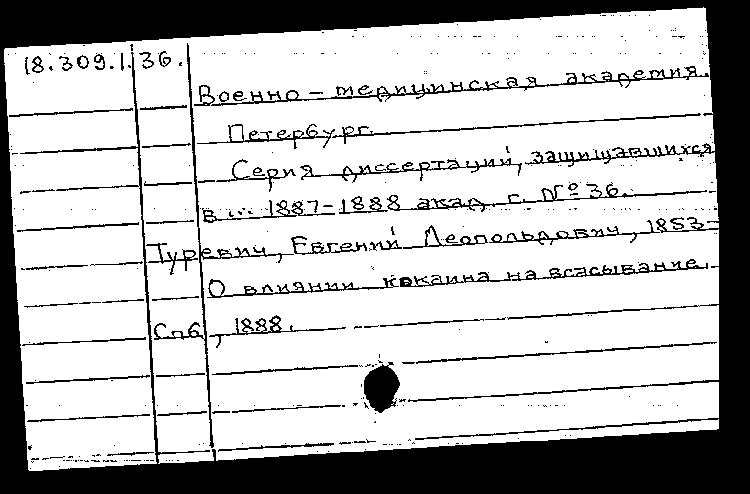 18.309.1.36.
Военно-медицинская академия.
Петербург.
Серия диссертаций, защищавшихся
в ... 1887-1888 акад. г. № 36.
Гуревич, Евгений Леопольдович, 1853-
О влиянии кокаина на всасывание.
Спб, 1888.